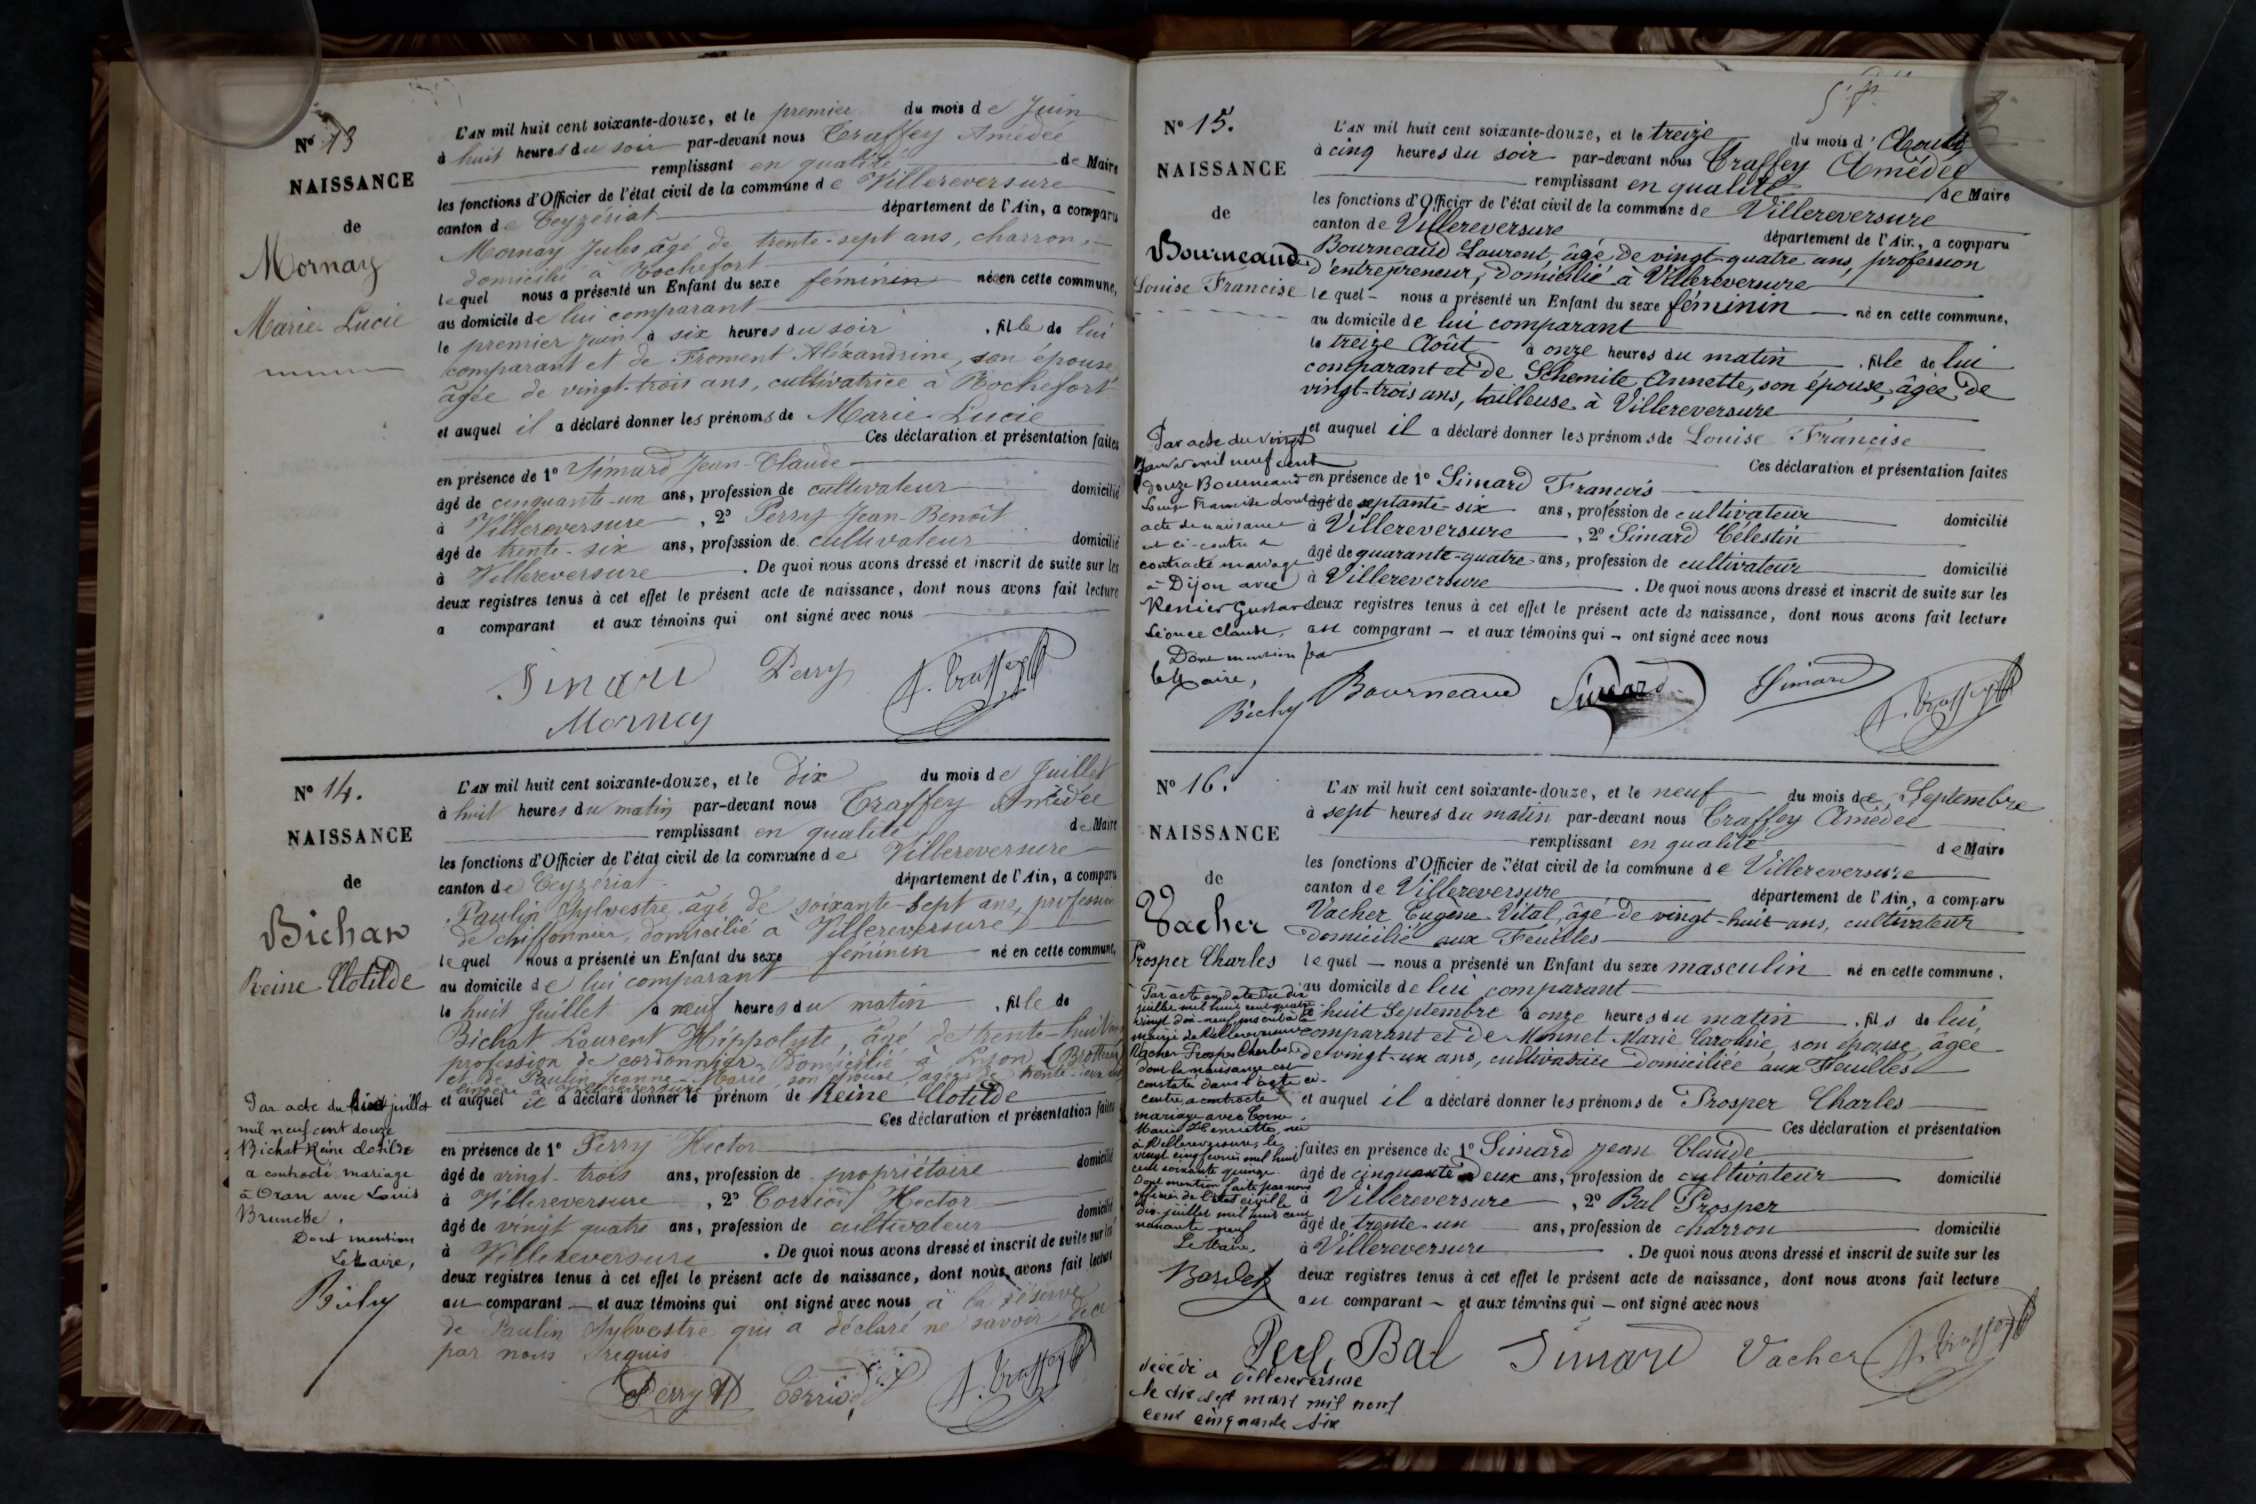 N° 13
NAISSANCE
de
Mornay
Marie Lucie
L'AN mil huit cent soixante-douze, et le premier du mois de Juin
à huit heures du soir par-devant nous Traffey Amédée
remplissant en qualité de Maire
les fonctions d'Officier de l'état civil de la commune de Villereversure
canton de Ceyzériat département de l'Ain, a comparu
Mornay Jules, âgé de trente-sept ans, charron,
domicilié à Rochefort
lequel nous a présenté un Enfant du sexe féminin né en cette commune,
au domicile de lui comparant
le premier juin à six heures du soir, fille de lui
comparant et de Froment Aléxandrine, son épouse
âgée de vingt-trois ans, cultivatrice à Rochefort
et auquel il a déclaré donner les prénoms de Marie Lucie
Ces déclaration et présentation faites
en présence de 1° Simard Jean-Claude
âgé de cinquante-un ans, profession de cultivateur domicilié
à Villereversure, 2° Perry Jean-Benoît
âgé de trente-six ans, profession de cultivateur domicilié
à Villereversure. De quoi nous avons dressé et inscrit de suite sur les
deux registres tenus à cet effet le présent acte de naissance, dont nous avons fait lecture
a comparant et aux témoins qui ont signé avec nous
Simard Perry A. Traffey
Mornay
N° 14.
NAISSANCE
de
Bichat
Reine Clotilde
L'AN mil huit cent soixante-douze, et le dix du mois de Juillet
à huit heures du matin par-devant nous Traffey Amédée
remplissant en qualité de Maire
les fonctions d'Officier de l'état civil de la commune de Villereversure
canton de Ceyzériat département de l'Ain, a comparu
Paulin Sylvestre âgé de soixante-sept ans, profession
de chiffonnier, domicilié à Villereversure
lequel nous a présenté un Enfant du sexe féminin né en cette commune,
au domicile de lui comparant
le huit Juillet à neuf heures du matin, fille de
Bichat Laurent Hippolyte, âgé de trente-huit ans
profession de cordonnier, domicilié à Lyon (Brotteaux)
et de Paulin Jeanne-Marie, son épouse, âgée de trente
lingère à Villereversure
et auquel il a déclaré donner le prénom de Reine Clotilde
Ces déclaration et présentation faites
en présence de 1° Perry Hector
âgé de vingt-trois ans, profession de propriétaire domicilié
à Villereversure, 2° Corrioz Hector
âgé de vingt quatre ans, profession de cultivateur domicilié
à Villereversure. De quoi nous avons dressé et inscrit de suite sur les
deux registres tenus à cet effet le présent acte de naissance, dont nous avons fait lecture
au comparant et aux témoins qui ont signé avec nous à la réserve
de Paulin Sylvestre qui a déclaré ne savoir de ce
par nous requis
Perry H Corrioz A. Traffey
Par acte du juillet
mil neuf cent douze
Bichat Reine Clotilde
a contracté mariage
à Oran avec Louis
Bruncke.
Dont mention
Le Maire,
Béchy
N° 15.
NAISSANCE
de
Bourneaud
Louise Francise
L'AN mil huit cent soixante-douze, et le treize du mois d'Août
à cinq heures du soir par-devant nous Traffey Amédée
remplissant en qualité de Maire
les fonctions d'Officier de l'état civil de la commune de Villereversure
canton de Villereversure département de l'Ain, a comparu
Bourneaud Laurent, âgé de vingt-quatre ans, profession
d'entrepreneur, domicilié à Villereversure
lequel nous a présenté un Enfant du sexe féminin né en cette commune,
au domicile de lui comparant
le treize Août à onze heures du matin, fille de lui
comparant et de Schemite Annette, son épouse, âgée de
vingt-trois ans, tailleuse à Villereversure
et auquel il a déclaré donner les prénoms de Louise Francise
Ces déclaration et présentation faites
en présence de 1° Simard Francois
âgé de septante-six ans, profession de cultivateur domicilié
à Villereversure, 2° Simard Célestin
âgé de quarante-quatre ans, profession de cultivateur domicilié
à Villereversure. De quoi nous avons dressé et inscrit de suite sur les
deux registres tenus à cet effet le présent acte de naissance, dont nous avons fait lecture
au comparant et aux témoins qui ont signé avec nous
Bourneaud Simard Simard A. Traffey
Par acte du vingt
Janvier mil neuf cent
douze Bourneaud
Louise Francise dont
acte de naissance
est ci-contre a
contracté mariage
à Dijon avec
Renier Gustave
Léonce Claude,
Dont mention par
le Maire,
Béchy
N° 16.
NAISSANCE
de
Vacher
Prosper Charles
L'AN mil huit cent soixante-douze, et le neuf du mois de Septembre
à sept heures du matin par-devant nous Traffey Amédée
remplissant en qualité de Maire
les fonctions d'Officier de l'état civil de la commune de Villereversure
canton de Villereversure département de l'Ain, a comparu
Vacher Eugène Vital, âgé de vingt-huit ans, cultivateur
domicilié aux Feuilles
lequel nous a présenté un Enfant du sexe masculin né en cette commune,
au domicile de lui comparant
le huit Septembre à onze heures du matin, fils de lui,
comparant et de Monnet Marie Caroline, son épouse, âgée
de vingt-un ans, cultivatrice domiciliée aux Feuilles
et auquel il a déclaré donner les prénoms de Prosper Charles
Ces déclaration et présentation
faites en présence de 1° Simard Jean Claude
âgé de cinquante deux ans, profession de cultivateur domicilié
à Villereversure, 2° Bal Prosper
âgé de trente-un ans, profession de charron domicilié
à Villereversure. De quoi nous avons dressé et inscrit de suite sur les
deux registres tenus à cet effet le présent acte de naissance, dont nous avons fait lecture
au comparant et aux témoins qui ont signé avec nous
Bal Simard Vacher A. Traffey
Par acte en date du dix
juillet mil huit cent quatre
vingt dix-neuf inscrit à la
mairie de Villereversure
Vacher Prosper Charles
dont la naissance est
constatée dans l'acte ci-
contre a contracté
mariage avec
Marie Henriette, née
à Villereversure, le
vingt cinq février mil huit
cent soixante quinze.
Dont mention faite par nous
officier de l'état civil le
dix juillet mil huit cent
nonante-neuf
Le Maire,
décédé à Villereversure
le dix sept mars mil neuf
cent cinquante six